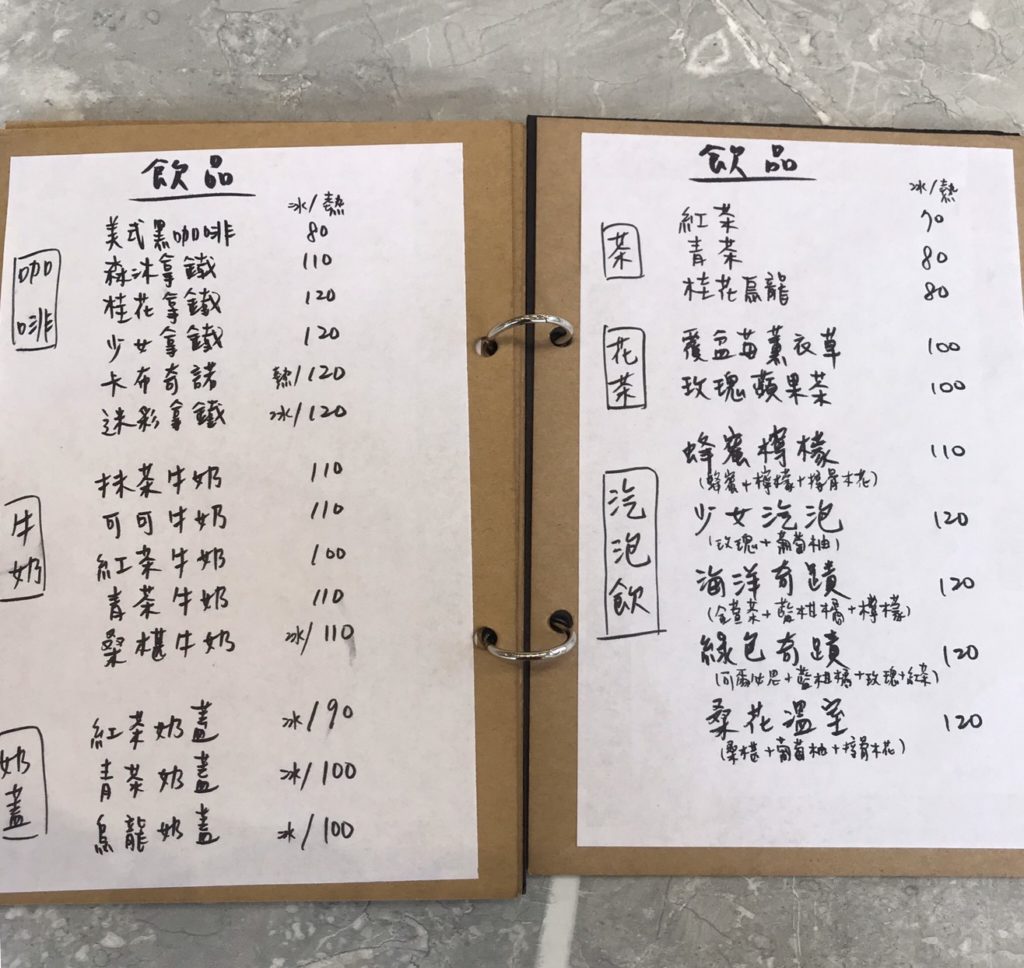 飲品
冰/熱
咖啡
美式黑咖啡 80
森沐拿鐵 110
桂花拿鐵 120
少女拿鐵 120
卡布奇諾 熱/120
迷彩拿鐵 冰/120
牛奶
抹茶牛奶 110
可可牛奶 110
紅茶牛奶 100
青茶牛奶 110
桑椹牛奶 冰/110
奶蓋
紅茶奶蓋 冰/90
青茶奶蓋 冰/100
烏龍奶蓋 冰/100
飲品
冰/熱
茶
紅茶 70
青茶 80
桂花烏龍 80
花茶
覆盆莓薰衣草 100
玫瑰蘋果茶 100
汽泡飲
蜂蜜檸檬 110
(蜂蜜+檸檬+接骨木花)
少女汽泡 120
(玫瑰+葡萄柚)
海洋奇蹟 120
(金萱茶+藍柑橘+檸檬)
綠色奇蹟 120
(可爾必思+藍柑橘+玫瑰+紅茶)
桑花溫室 120
(桑椹+葡萄柚+接骨木花)